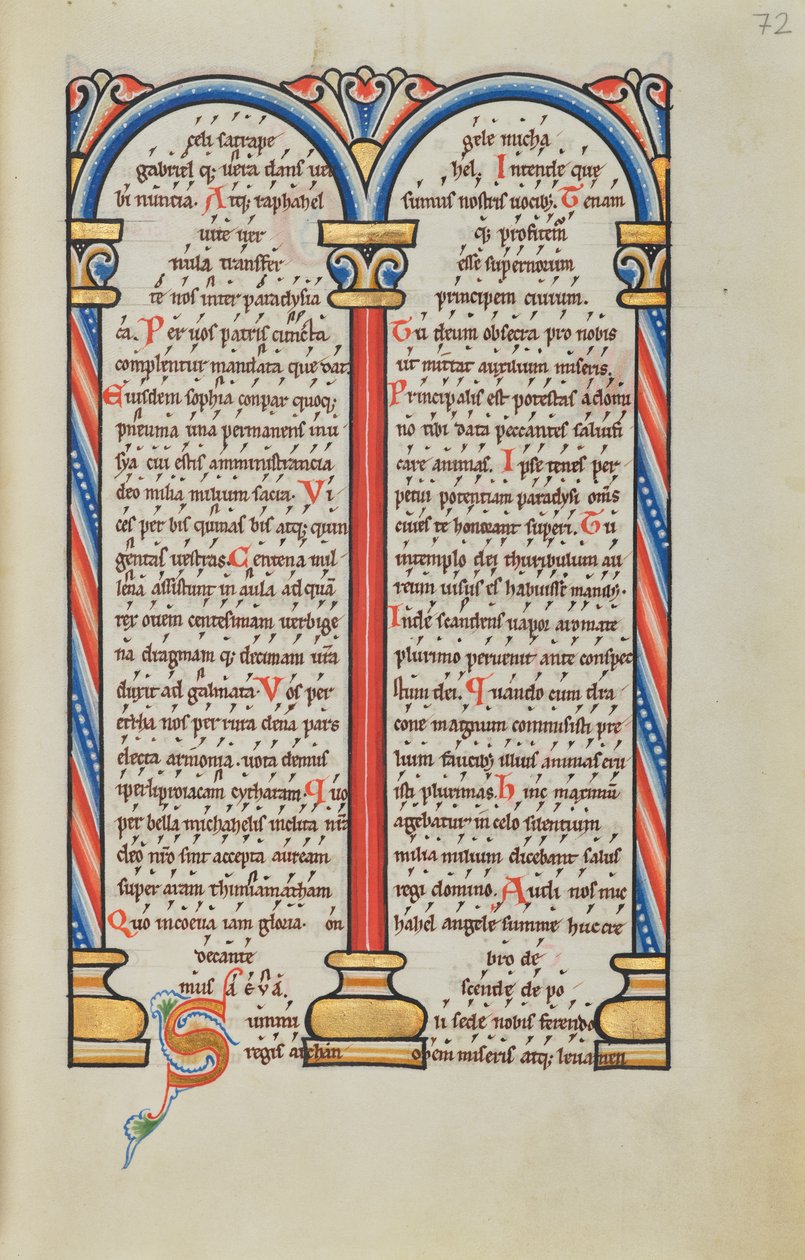 72
celi satrape
gabriel q; uera dans uer
bi nuncia. Atq; raphahel
uite ver
nula transfer
te nos inter paradysia
ca. Per uos patris cuncta
complentur mandata que dat.
Eiusdem sophia conpar quoq;
pneuma una permanens inu
sya cui estis amministrancia
deo milia milium sacra. Vi
ces per bis quinas bis atq; quin
gentas uestras. Centena mil
lena assistunt in aula ad quā
rex ouem centesimam uerbige
na dragmam q; decimam
duxit ad Vos per
ethra nos per rura dena pars
electa armonia. uota demus
cytharam. Quo
per bella michahelis inclita nr̄a
deo sint accepta auream
super aram thimiamatham
Quo in coeua iam gloria. con
decante
mus aeva.
Summi
regis archan
gele micha
hel. Intende que
sumus nostris uocib;. Tenam
q; profitem̄
esse supernorum
principem ciuium.
Tu deum obsecra pro nobis
ut mittat auxilium miseris.
Principalis est potestas a domi
no tibi data peccantes saluifi
care animas. Ipse tenes per
petui potentiam paradysi om̄s
ciues te honorant superi. Tu
in templo dei thuribulum au
reum uisus es habuisse manib;.
Inde scandens uapor aromate
plurimo peruenit ante conspec
tum dei. Quando cum dra
cone magnum commisisti pre
lium faucib; illius animas eru
isti plurimas. Hinc maximū
agebatur in celo silentium
milia milium dicebant salus
regi domino. Audi nos mic
hahel angele summe huc cre
bro de
scende de po
li sede nobis ferendo
opem miseris atq; leuamen